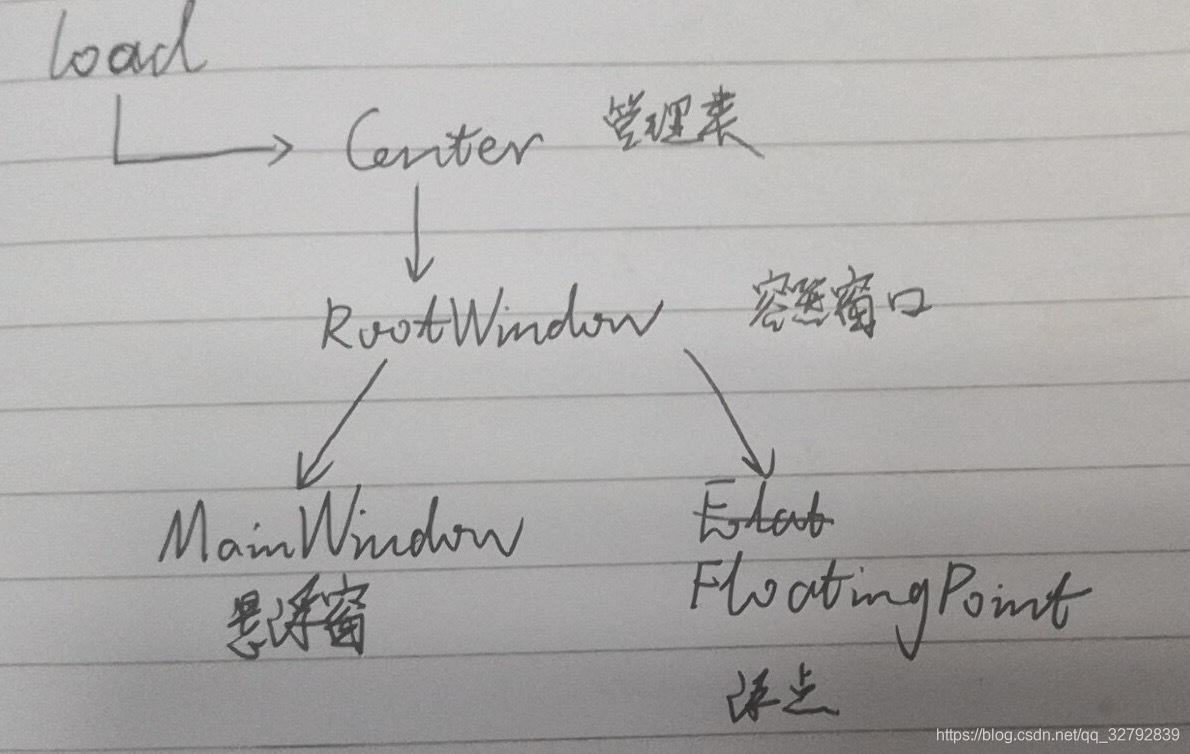 load
Center 管理类
RootWindow 容器窗口
MainWindow
悬浮窗
Flat
FloatingPoint
浮点
https://blog.csdn.net/qq_32792839